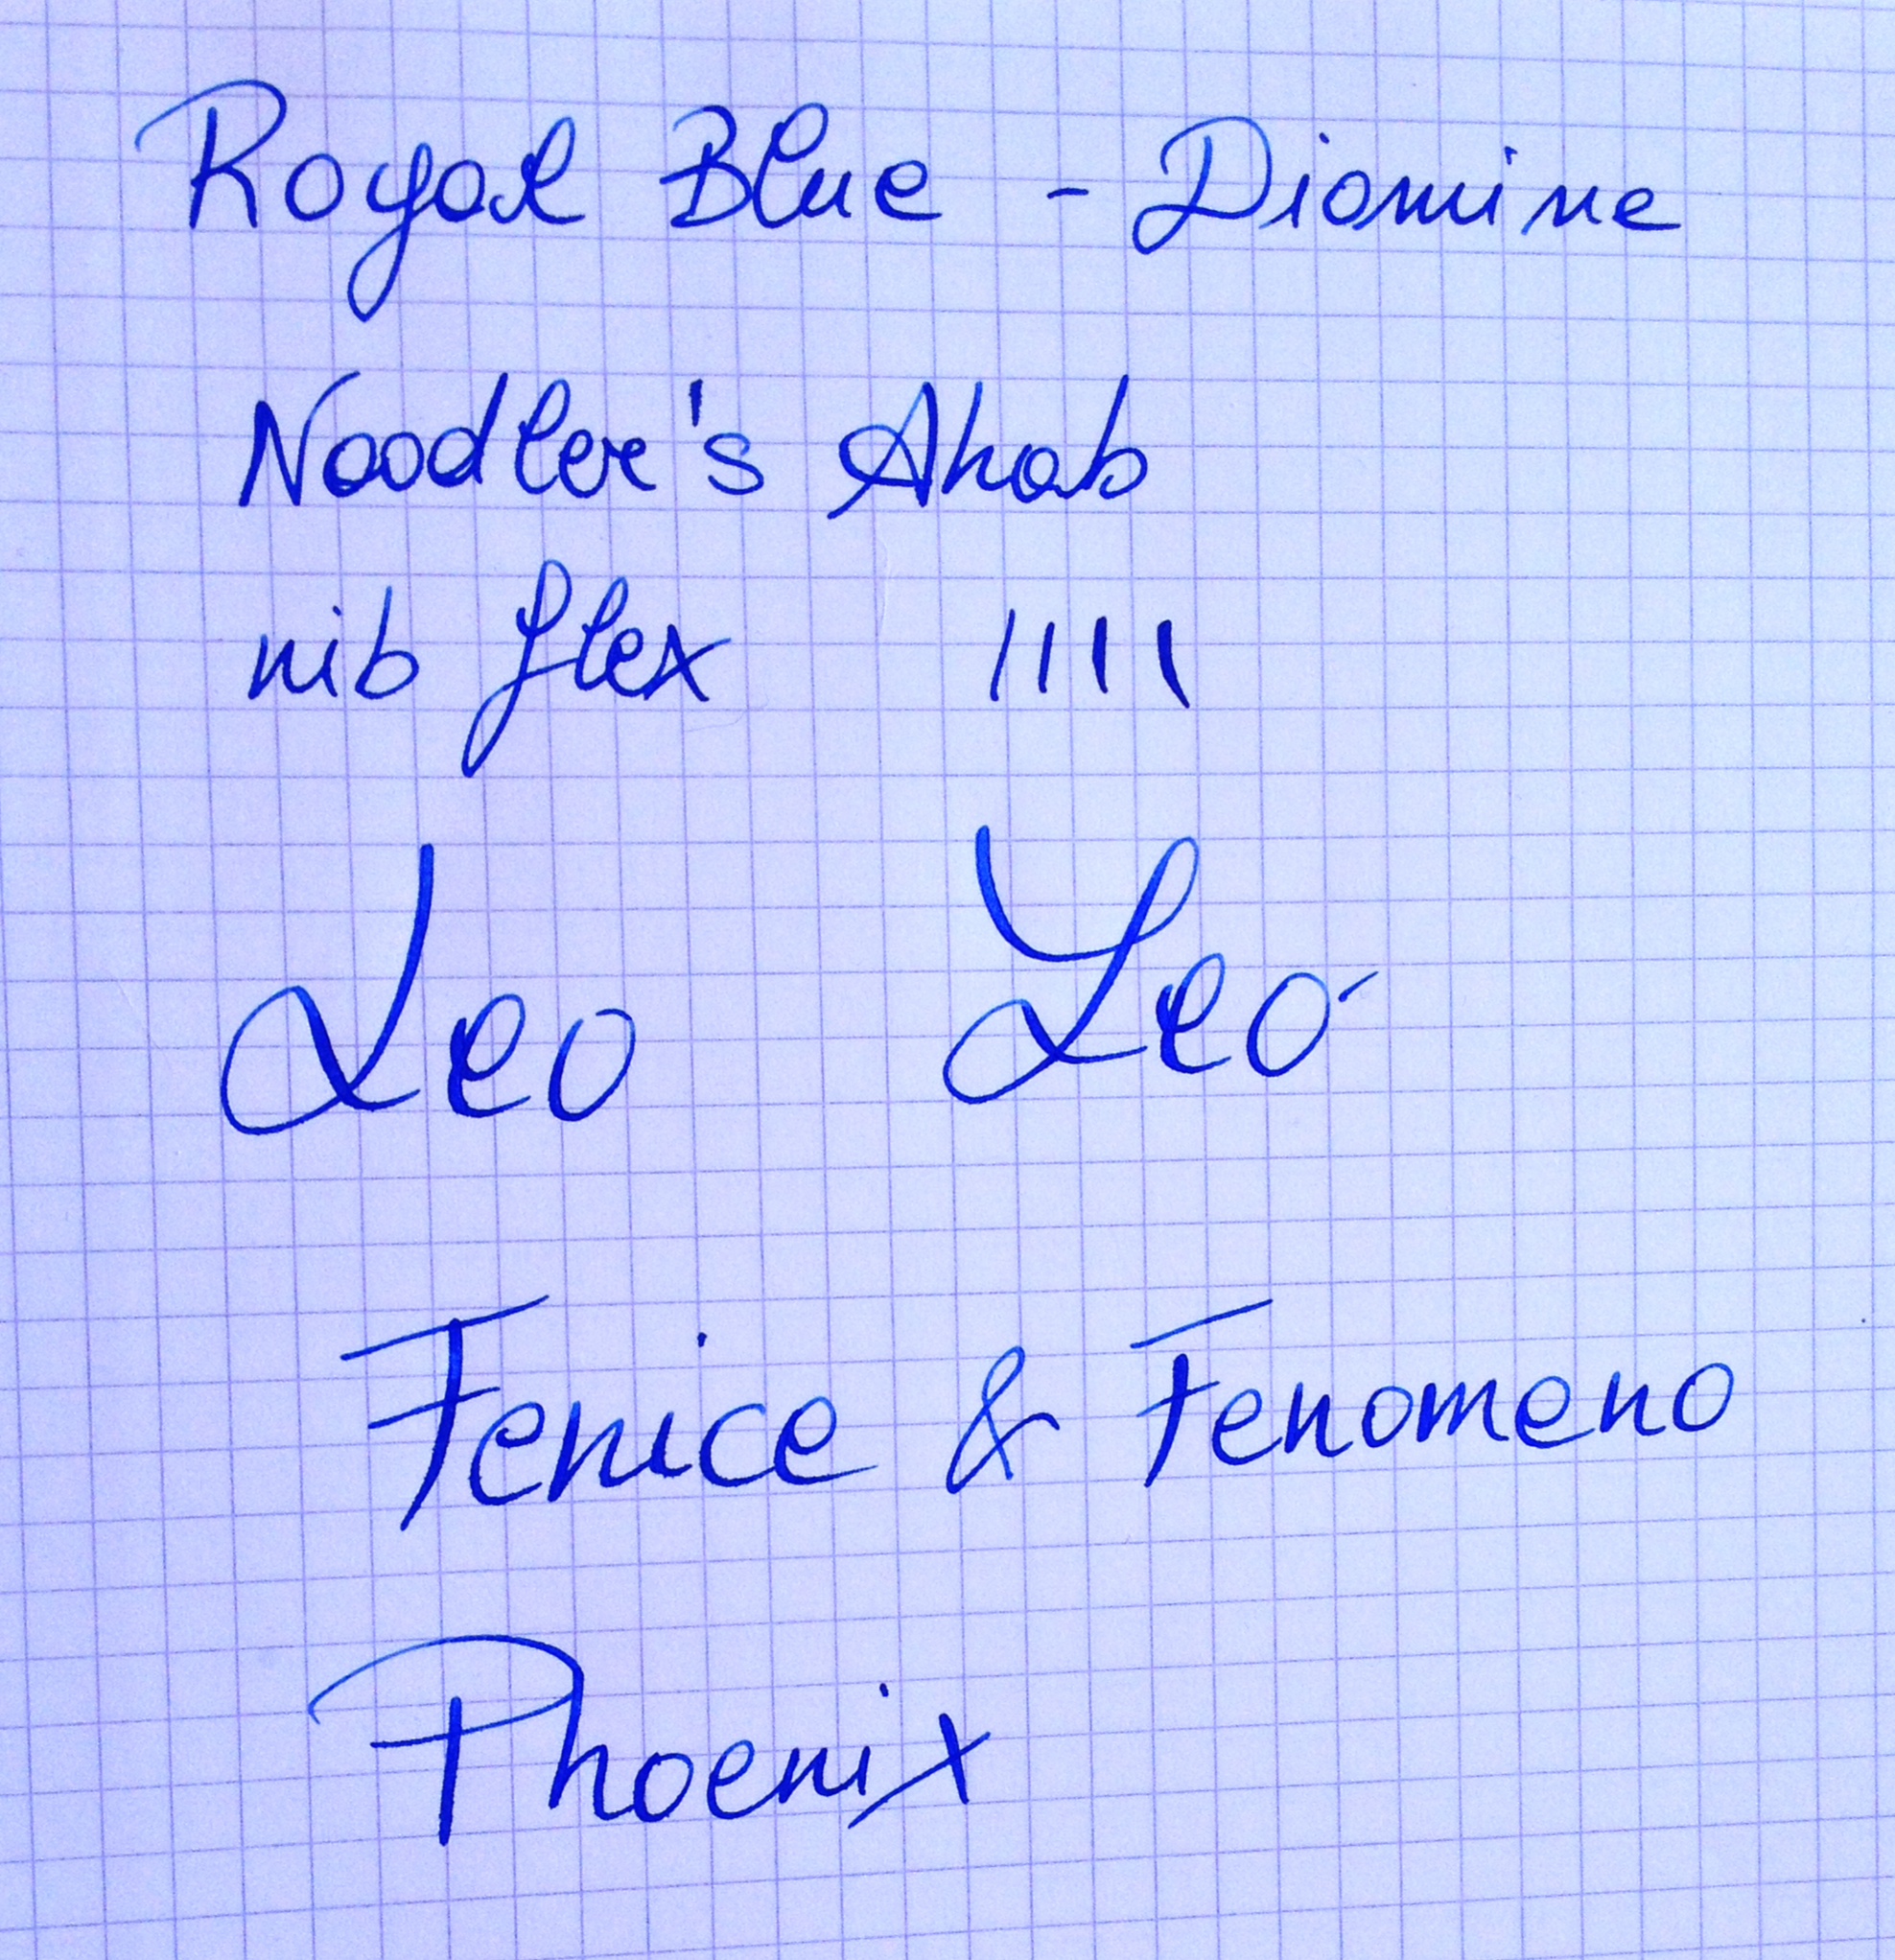 Royal Blue - Diamine
Noodler's Ahab
nib flex ||||
Leo Leo
Fenice & Fenomeno
Phoenix